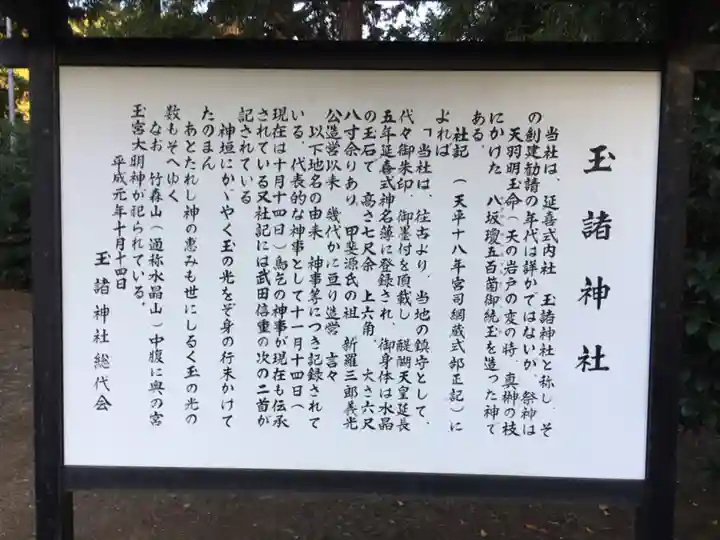 玉諸神社
当社は、延喜式内社 玉諸神社と称し、そ
の創建勧請の年代は詳かではないが、祭神は
天羽明玉命(天の岩戸の変の時、真榊の枝
にかけた 八坂瓊五百箇御統玉を造った神で
ある。
社記 (天平十八年宮司網蔵式部正記)に
よれば
「当社は、往古より、当地の鎮守として、
代々御朱印、御墨付を頂戴し 醍醐天皇延長
五年延喜式神名簿に登録され、御身体は水晶
の玉石で 高さ七尺余 上六角、大さ六尺
八寸余りあり、甲斐源氏の祖 新羅三郎義光
公造営以来 幾代かに亘り造営 言々
以下地名の由来 神事等につき記録されて
いる。代表的な神事として十一月十四日(
現在は十月十四日)鳥乞の神事が現在も伝承
されている又社記には武田信重の次の二首が
記されている
神垣にかゞやく玉の光をぞ身の行末かけて
たのまん
あとたれし神の恵みも世にしるく玉の光の
数もそへゆく
なお 竹森山(通称水晶山)中腹に奥の宮
玉宮大明神が祀られている。
平成元年十月十四日
玉諸神社総代会